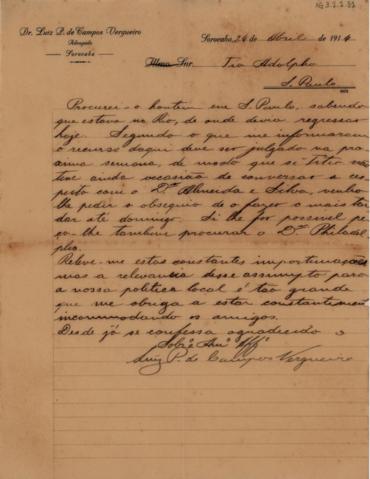 AG 3.2.2.91
Dr. Luiz P. de Campos Vergueiro
Advogado
Sorocaba
Sorocaba, 24 de Abril de 1914
Illmo. Snr. Tio Adolpho
S. Paulo
Procurei-o hontem em S. Paulo, sabendo
que estava no Rio, de onde devia regressar
hoje. Segundo o que me informaram
o recurso daqui deve ser julgado na pro
xima semana, de modo que si
tive ainda occasião de conversar a res
peito com o Dr. Almeida e Silva, venho
lhe pedir o obsequio de o fazer o mais tar
dar até domingo. Si lhe for possivel pe
ço-lhe tambem procurar o Dr. Philadel
pho.
Releve-me estas constantes importunações
mas a relevancia desse assumpto para
a nossa politica local é tão grande
que me obriga a estar constantemente
incommodando os amigos.
Desde já se confessa agradecido o
Sobro. Amo.
Luiz P. de Campos Vergueiro